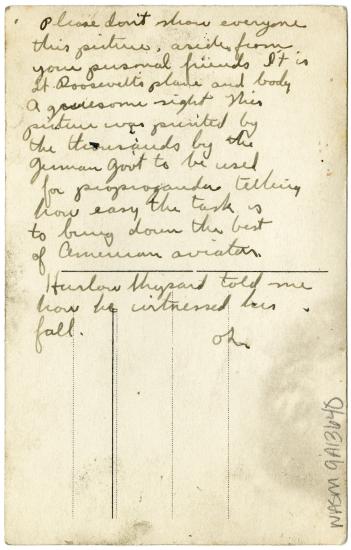 Please dont show everyone
this picture, aside from
your personal friends It is
Lt Roosevelts plane and body
A gruesome sight This
picture was printed by
the thousands by the
German Govt to be used
for proproganda telling
how easy the task is
to bring down the best
of American aviators.
Harlow told me
how he witnessed his
fall.
NASM 9A13648